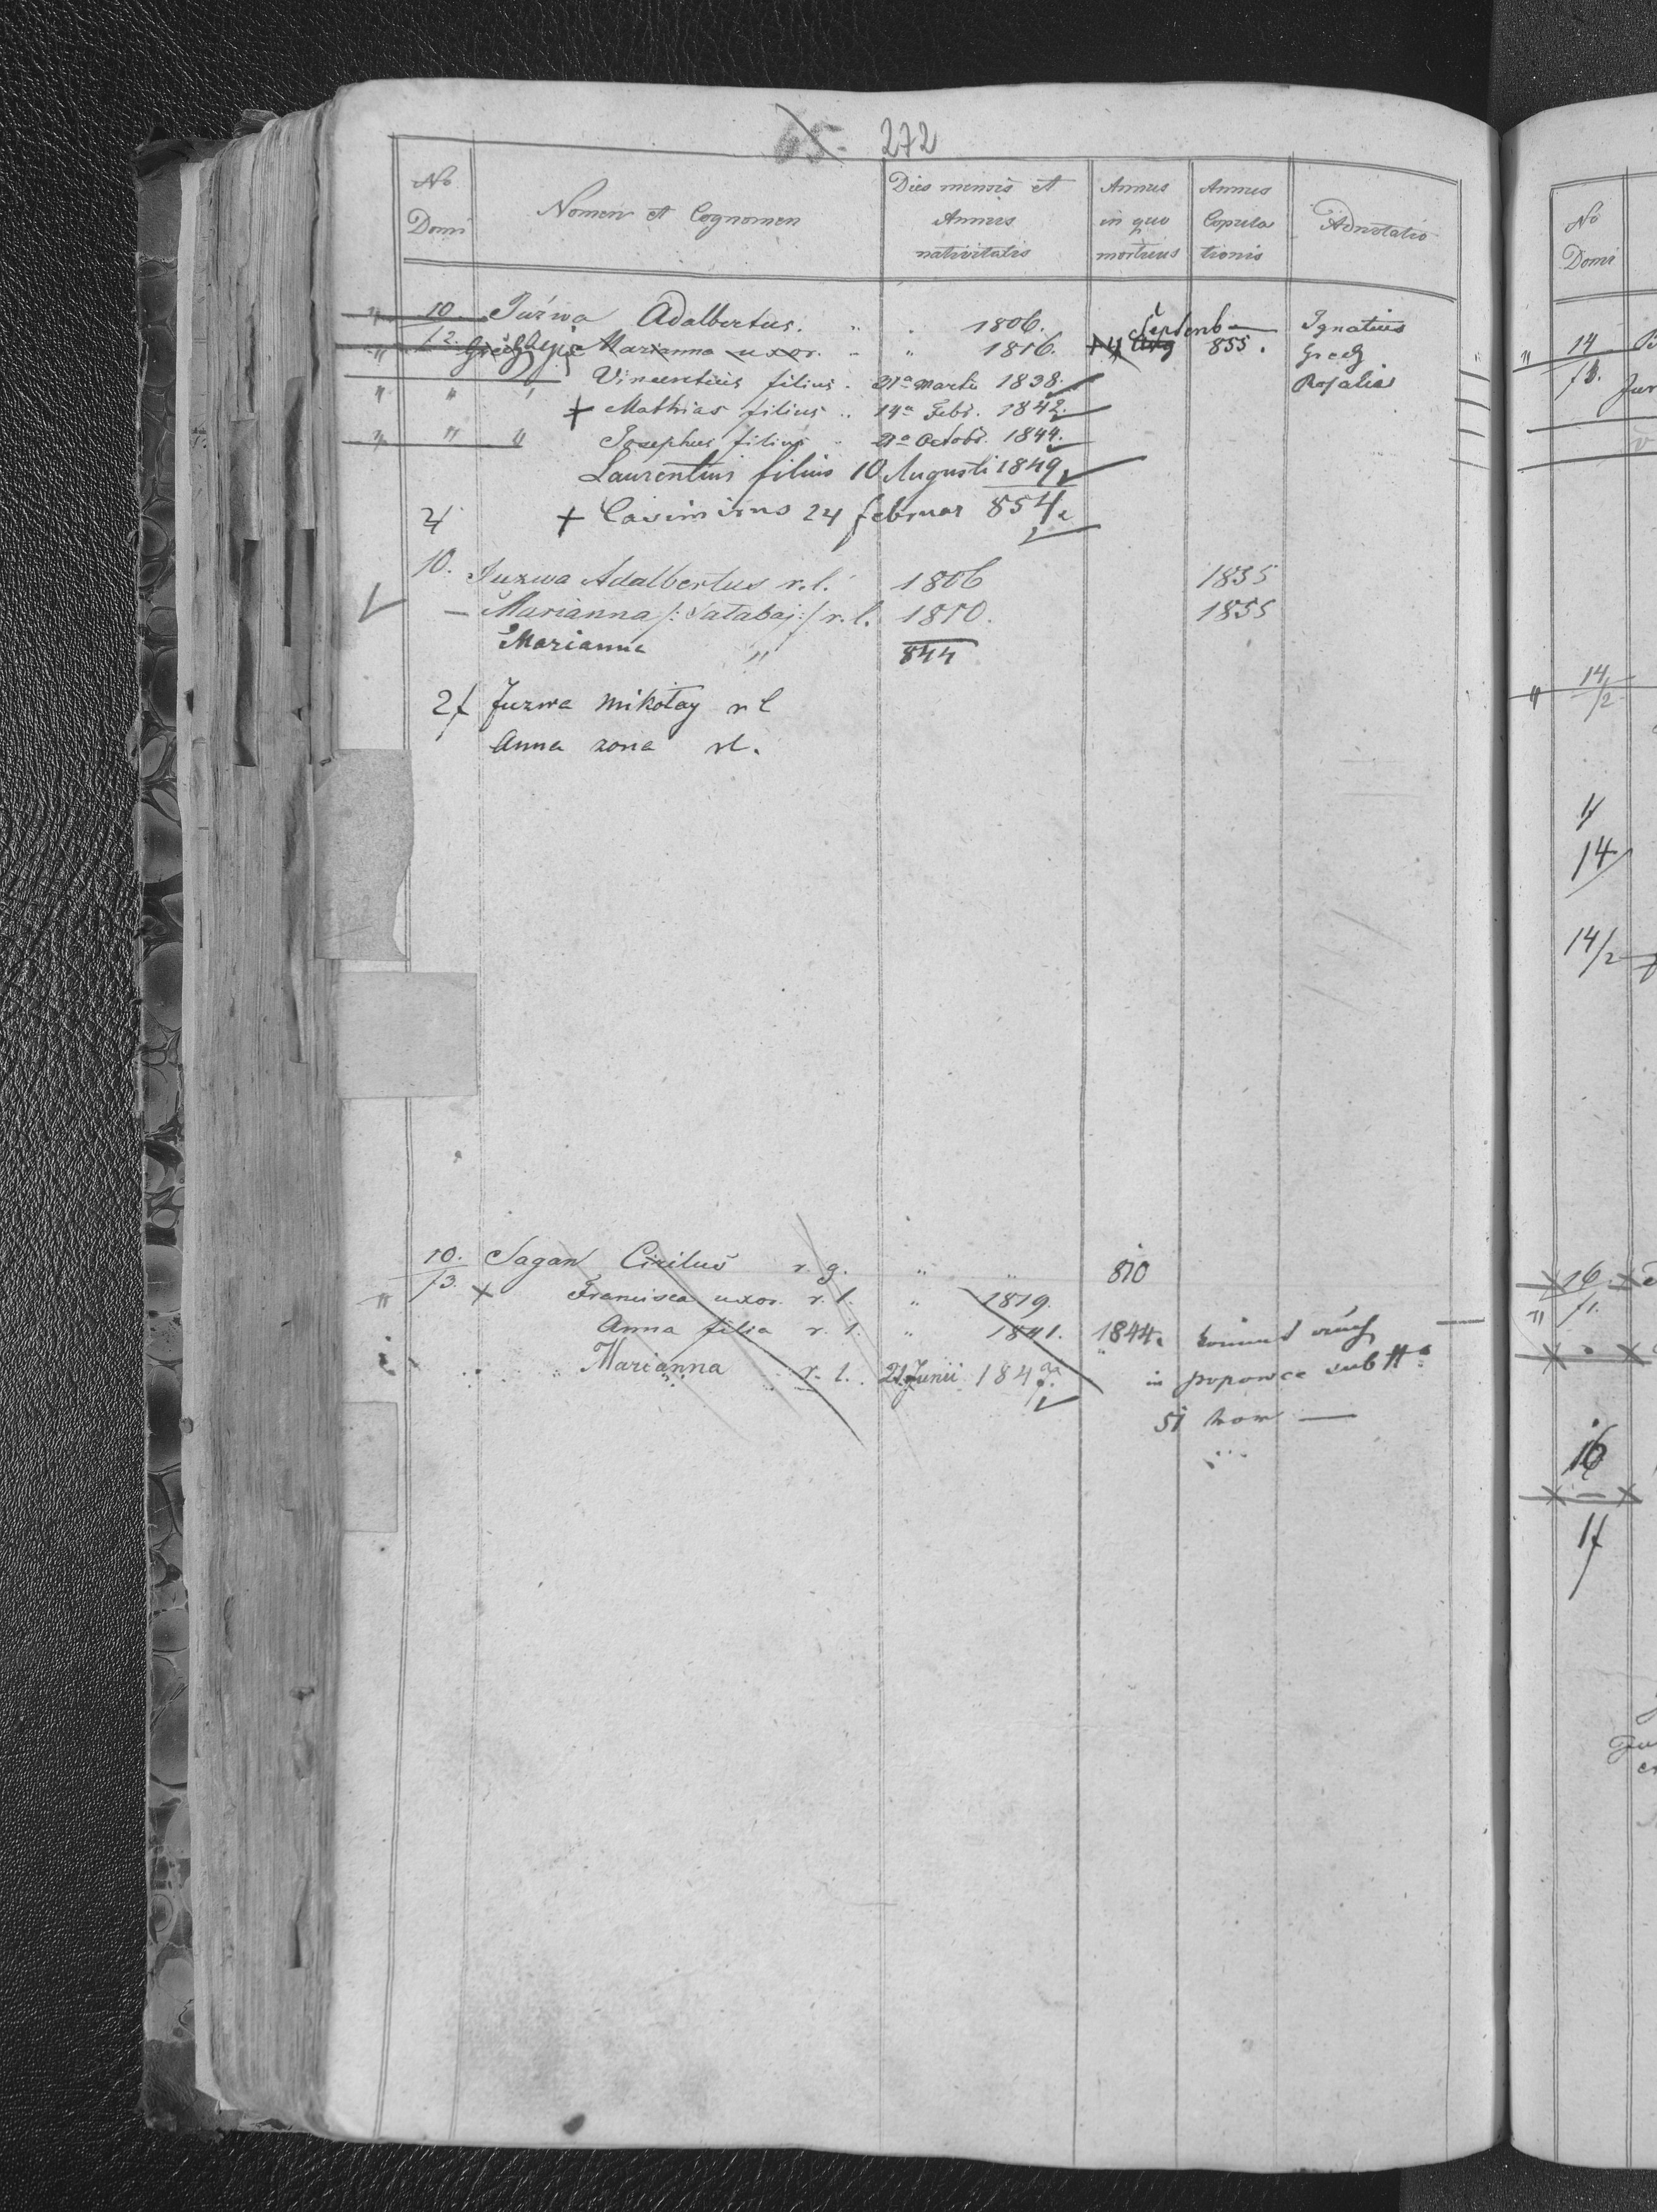 65. 272
No Domi Nomen et Cognomen Dies mensis et Annus nativitatis Annus in quo mortuus Annus Copulationis Adnotatio
10. Juźwa Adalbertus. " . 1806. Septemb Ignatius
/2. Marianna uxor. " 1816. 855. Grech
" " Vincentius filius. 21a Martii 1838. Rosalia
+ Mathias filius 14a Febr. 1842.
" " " Josephus filius 21a Octobr. 1844.
Laurentius filius 10 Augusti 1849
2f + Casimirus 24 februar 854
10. Juzwa Adalbertus r.l. 1806 1855
— Marianna /: Satabaj :/ r.l. 1810. 1855
Marianna " 844
2f Juzwa Mikołay r l
Anna zona rl.
10. Sagan Cirilus r. g. " " 810
/3. + Francisca uxor. r. l. " 1819.
Anna filia r. l. " 1841. 1844.
Marianna r. l. 21 Junii 1847. in popowce sub No
51
No Domi
14
/3. Jur
14
/2
14
14/2
16
/1.
16